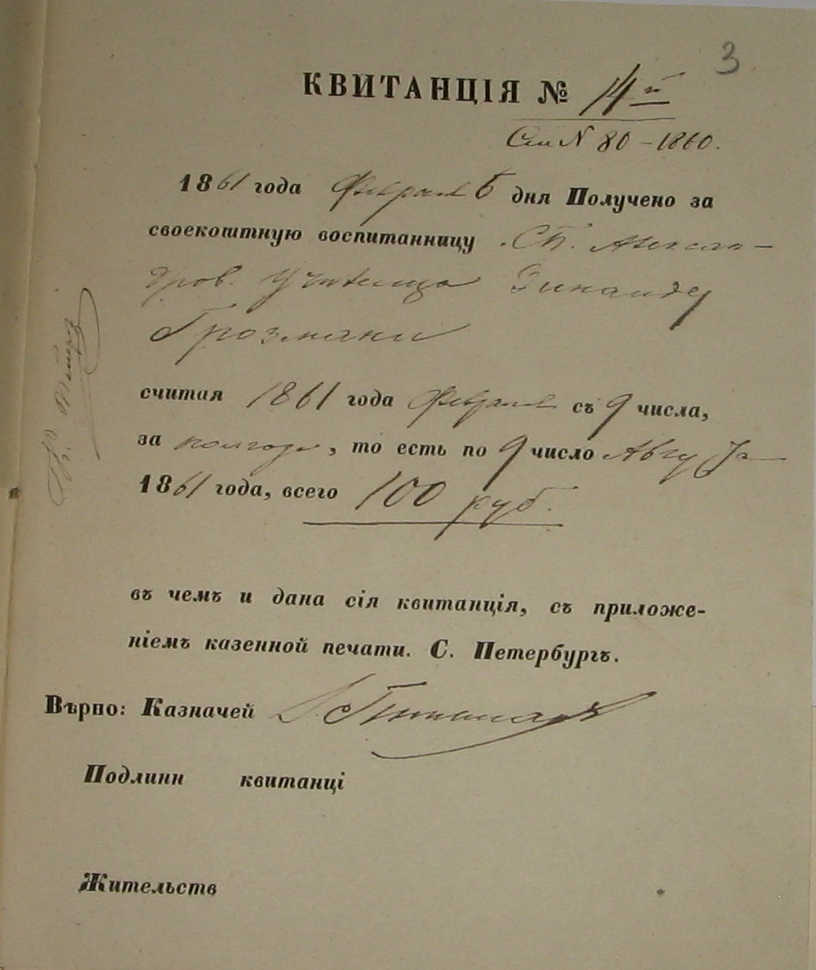 3
КВИТАНЦІЯ № 14
N 80 – 1860.
1861 года Февраля 6 дня Получено за
своекоштную воспитанницу СП. Алексан-
дров. Училища Зинаиду
Грозманн
считая 1861 года Февраля съ 9 числа,
за полгода, то есть по 9 число Августа
1861 года, всего 100 руб.
въ чемъ и дана сія квитанція, съ приложе-
ніемъ казенной печати. С. Петербургъ.
Вѣрно: Казначей
Подлинн квитанці
Жительств